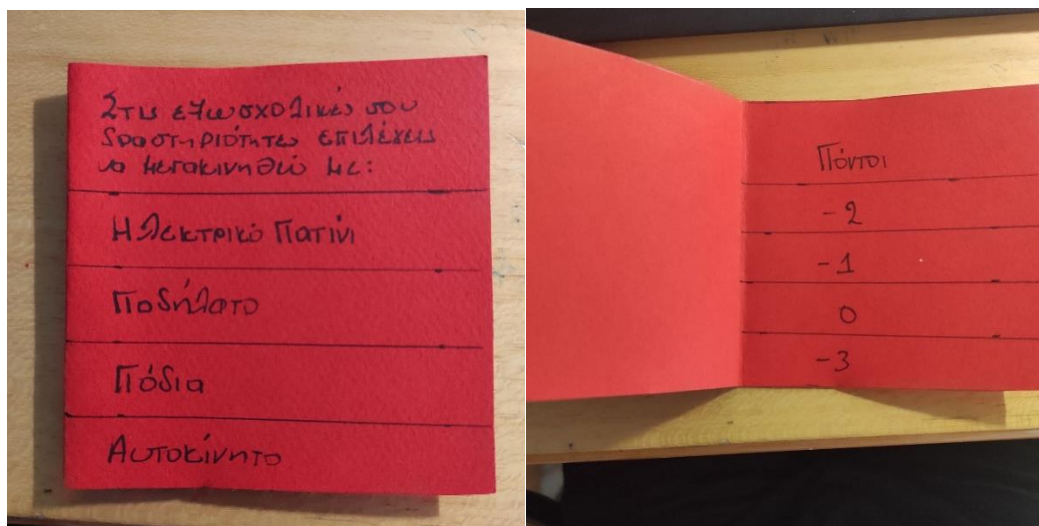 Στις εξωσχολικές σου
δραστηριότητες επιλέγεις
να μετακινηθείς με:
Ηλεκτρικό Πατίνι
Ποδήλατο
Πόδια
Αυτοκίνητο
Πόντοι
-2
-1
0
-3